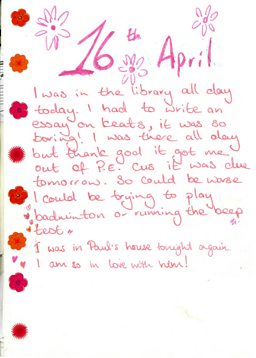 16th April
I was in the library all day
today. I had to write an
essay on Keats, it was so
boring! I was there all day
but thank god it got me
out of P.E. cus it was due
tomorrow. So could be worse
I could be trying to play
badminton or running the beep
test.
I was in Paul's house tonight again
I am so in love with him!